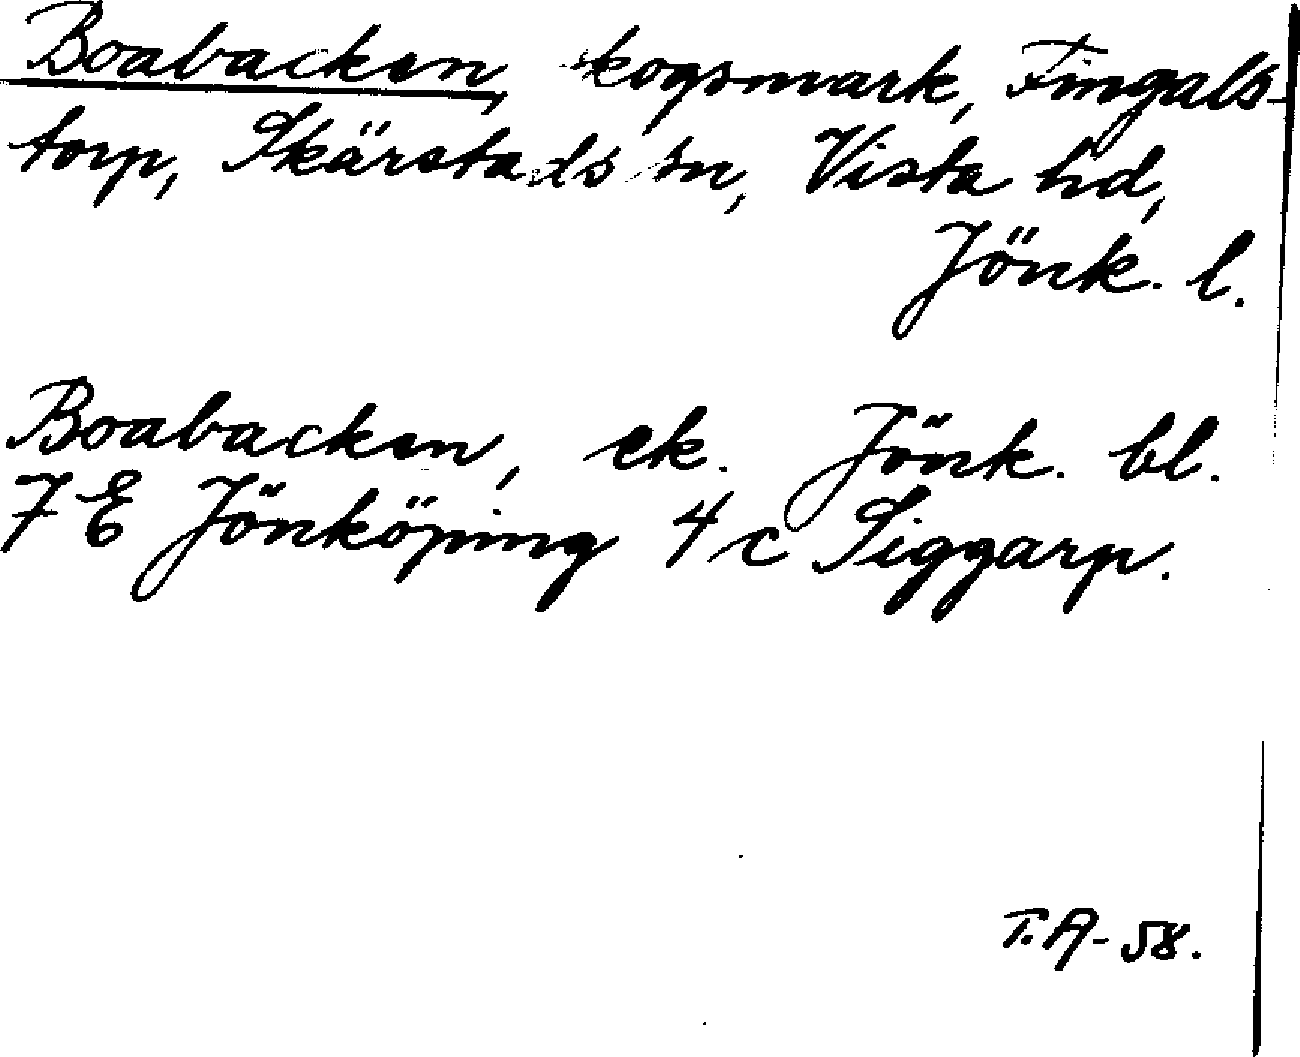 Boabacken, skogsmark, Fingals-
torp, Skärstads sn, Vista hd,
Jönk. l.
Boabacken, ek. Jönk. bl.
7 E Jönköping 4 c Siggarp.
T.A-58.